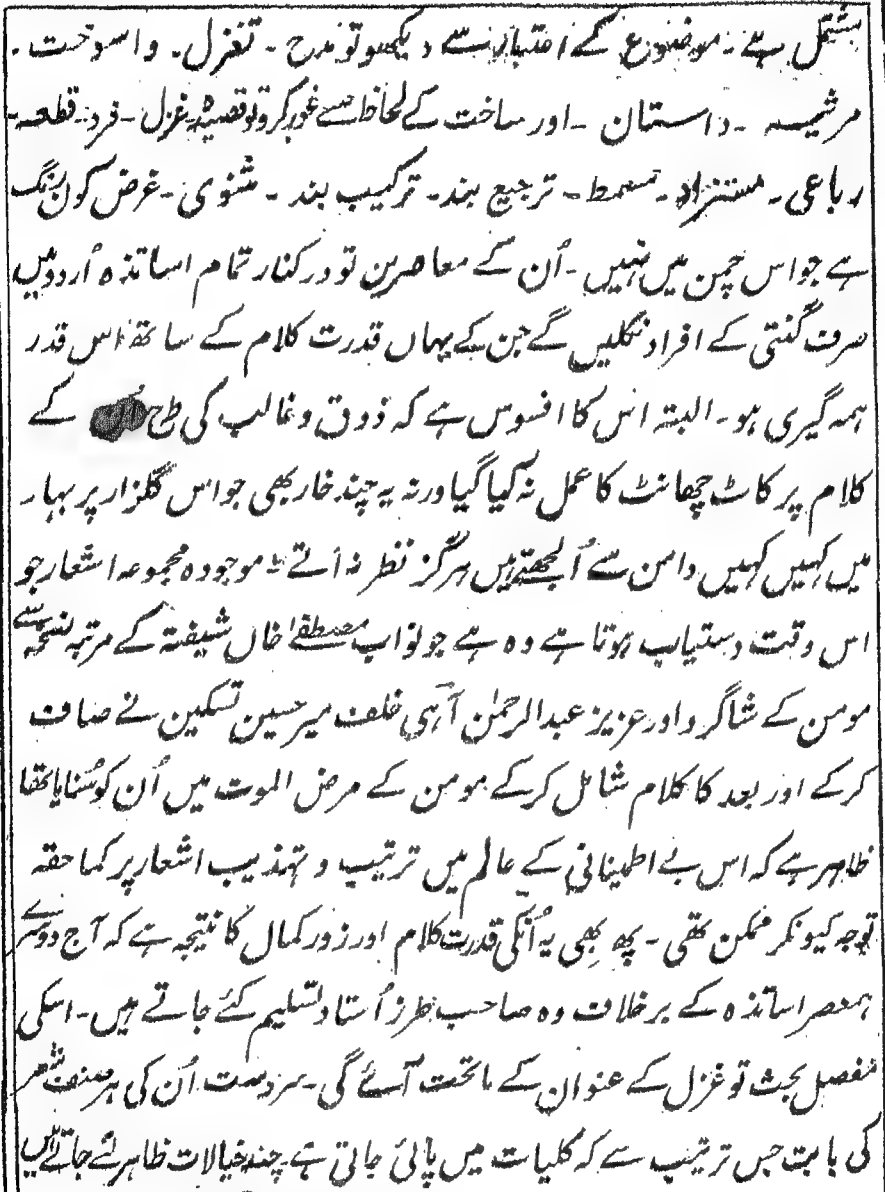 مشتمل ہے۔ موضوع کے اعتبار سے دیکھو تو مدح ۔ تغزل۔ واسوخت۔
مرثیہ ۔داستان ۔اور ساخت کے لحاظ سے غور کرو تو قصیدہ۔غزل ۔فرد۔قطعہ۔
رباعی۔ مستزاد۔ مسمط۔ ترجیع بند۔ ترکیب بند ۔ مثنوی ۔غرض کون رنگ
ہے جو اس چمن میں نہیں ۔اُن کے معاصرین تو درکنار تمام اساتذہ اُردو میں
صرف گنتی کے افراد نکلیں گے جن کے یہاں قدرت کلام کے ساتھ اس قدر
ہمہ گیری ہو۔ البتہ اس کا افسوس ہے کہ ذوق و غالب کی طرح اُن کے
کلام پر کاٹ چھانٹ کا عمل نہ کیا گیا ورنہ یہ چند خار بھی جو اس گلزار پر بہار
میں کہیں کہیں دامن سے اُلجھتے ہیں ہرگز نظر نہ آتے۔ موجودہ مجموعہ اشعار جو
اس وقت دستیاب ہوتا ہے وہ ہے جو نواب مصطفےٰ خاں شیفتہ کے مرتبہ نسخہ سے
مومن کے شاگرد اور عزیز عبدالرحمٰن آہی خلف میر حسین تسکین نے صاف
کرکے اور بعد کا کلام شامل کرکے مومن کے مرض الموت میں اُن کو سُنایا تھا
ظاہر ہے کہ اس بے اطمینانی کے عالم میں ترتیب و تہذیب اشعار پر کماحقہ
توجہ کیونکر ممکن تھی ۔ پھر بھی یہ اُنکی قدرت کلام اور زور کمال کا نتیجہ ہے کہ آج دوسرے
ہمعصر اساتذہ کے برخلاف وہ صاحب طرز اُستاد تسلیم کئے جاتے ہیں۔اسکی
مفصل بحث تو غزل کے عنوان کے ماتحت آئے گی۔سردست اُن کی ہر صنف شعر
کی بابت جس ترتیب سے کہ کلیات میں پائی جاتی ہے۔چند خیالات ظاہر کئے جاتے ہیں